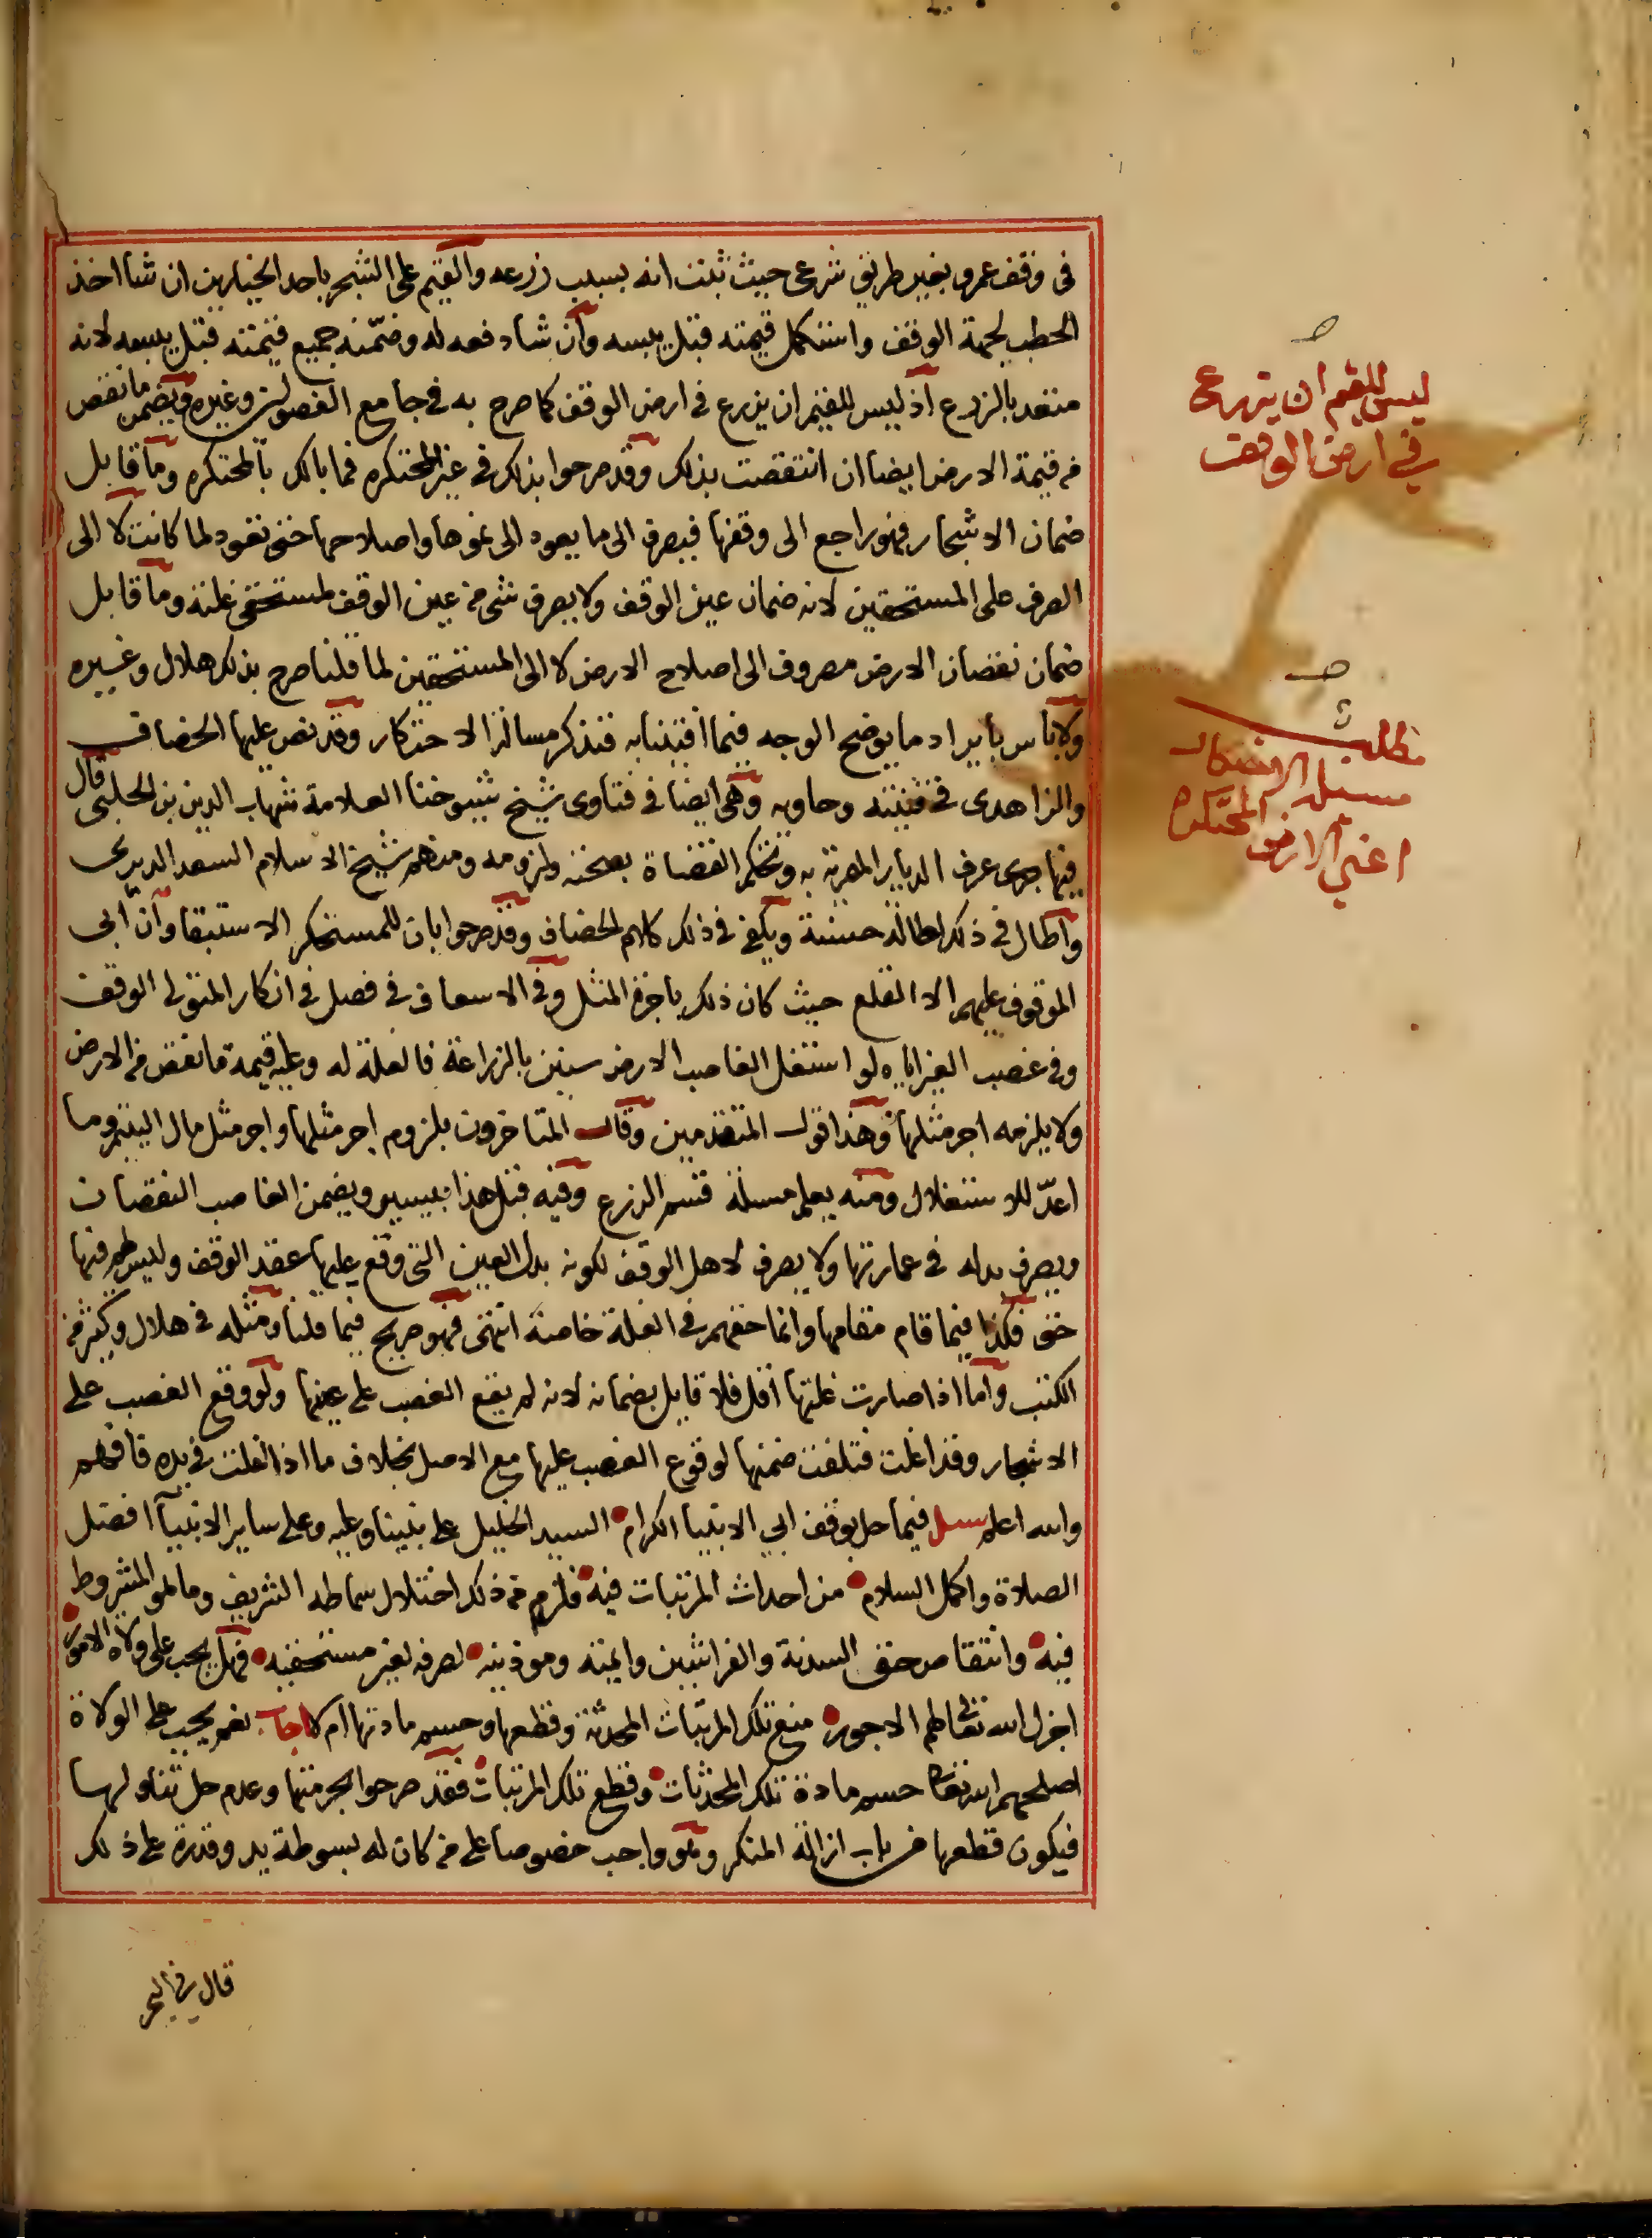 في وقف عمرو بغير طريق شرعي حيث ثبت انه بسبب زرعه والقيم على الشجر باحد الخيارين ان شا اخذ
الحطب لجهة الوقف واستكمل قيمته قبل يبسه وان شاد فعه له وضمنه جميع قيمته قبل يبسه لانه
متعد بالزرع اذ ليس للقيم ان يزرع في ارض الوقف كما صرح به في جامع الفصولين وغيره ويضمن ما نقص
من قيمة الارض ايضا ان انتقصت بذلك وقد صرحوا بذلك في غير المحتكره فما بالك بالمحتكره وما قابل
ضمان الاشجار فهو راجع الى وقفها فيصرف الى ما يعود الى نموها واصلاحها حتى تعود لما كانت لا الى
الصرف على المستحقين لانه ضمان عين الوقف ولا يصرف شي من عين الوقف لمستحقي غلته وما قابل
ضمان نقصان الارض مصروف الى اصلاح الارض لا الى المستحقين لما قلنا صرح بذلك هلال وغيره
ولا باس بايراد ما يوضح الوجه فيما افتينا به فنذكر مسالة الاحتكار وقد نص عليها الخصاف
والزاهدى في قنيته وحاويه وهي ايضا في فتاوى شيخ شيوخنا العلامة شهاب الدين بن الحلبي قال
فيها جرى عرف الديار المصرية به وتحكم القضاة بصحته ولزومه ومنهم شيخ الاسلام السعد الديرى
واطال في ذلك اطالة حسنة ويكفي في ذلك كلام الخصاف وقد صرحوا بان للمستحكر الاستبقا وان ابى
الموقوف عليهم الا القلع حيث كان ذلك باجرة المثل وفي الاسعاف في فصل في انكار المتولي الوقف
وفي غصب الغير اياه لو استغل الغاصب الارض سنين بالزراعة فالغلة له وعليه قيمة ما نقص من الارض
ولا يلزمه اجر مثلها وهذا قول المتقدمين وقال المتاخرون بلزوم اجر مثلها واجر مثل مال اليتيم وما
اعدّ للاستغلال ومنه يعلم مسلة قسم الزرع وفيه قبل هذا بيسير ويضمن الغاصب النقصان
ويصرف بدله في عمارتها ولا يصرف لاهل الوقف لكونه بدل العين التي وقع عليها عقد الوقف وليس لهم فيها
حق فكذا فيما قام مقامها وانما حقهم في الغلة خاصة انتهى فهو صريح فيما قلنا ومثله في هلال وكثير من
الكتب واما اذا صارت غلتها اقل فلا قايل بضمانه لانه لم يقع الغصب على عينها ولو وقع الغصب على
الاشجار وقد اغلت فتلفت ضمنها لوقوع الغصب عليها مع الاصل بخلاف ما اذا اغلت في يده فافهم
والله اعلم سيل فيما حل بوقف ابي الانبيا الكرام السيد الخليل على نبينا وعليه وعلى ساير الانبيا افضل
الصلاة واكمل السلام من احداث المرتبات فيه فلزم من ذلك اختلال سماطه الشريف وما هو المشروط
فيه وانتقاص حق السدنة والفراشين وايمته وموذنيه لصرفه لغير مستحقيه فهل يجب على ولاة الامور
اجزل الله تعالى لهم الاجور منع تلك المرتبات المحدثة وقطعها وحسم مادتها ام لا اجاب نعم يجب على الولاة
اصلحهم الله تعالى حسم مادة تلك المحدثات وقطع تلك المرتبات فقد صرحوا بحرمتها وعدم حل تناولها
فيكون قطعها من باب ازالة المنكر وهو واجب خصوصا على من كان له بسوطة يد وقدرة على ذلك
قال في البحر
ليس للقيم ان يزرع
في ارض الوقف
مطلب
مسيلة الاحتكار
اعني الارض المحتكره